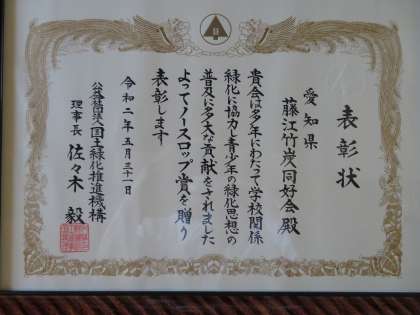 表彰状
愛知県
藤江竹炭同好会殿
貴会は多年にわたって学校関係
緑化に協力し青少年の緑化思想の
普及に多大な貢献をされました
よってノースロップ賞を贈り
表彰します
令和二年五月三十一日
公益社団法人国土緑化推進機構
理事長 佐々木 毅